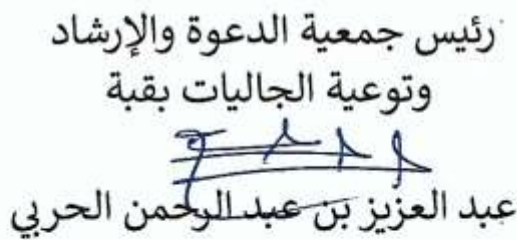 رئيس جمعية الدعوة والإرشاد
وتوعية الجاليات بقبة
عبد العزيز بن عبد الرحمن الحربي